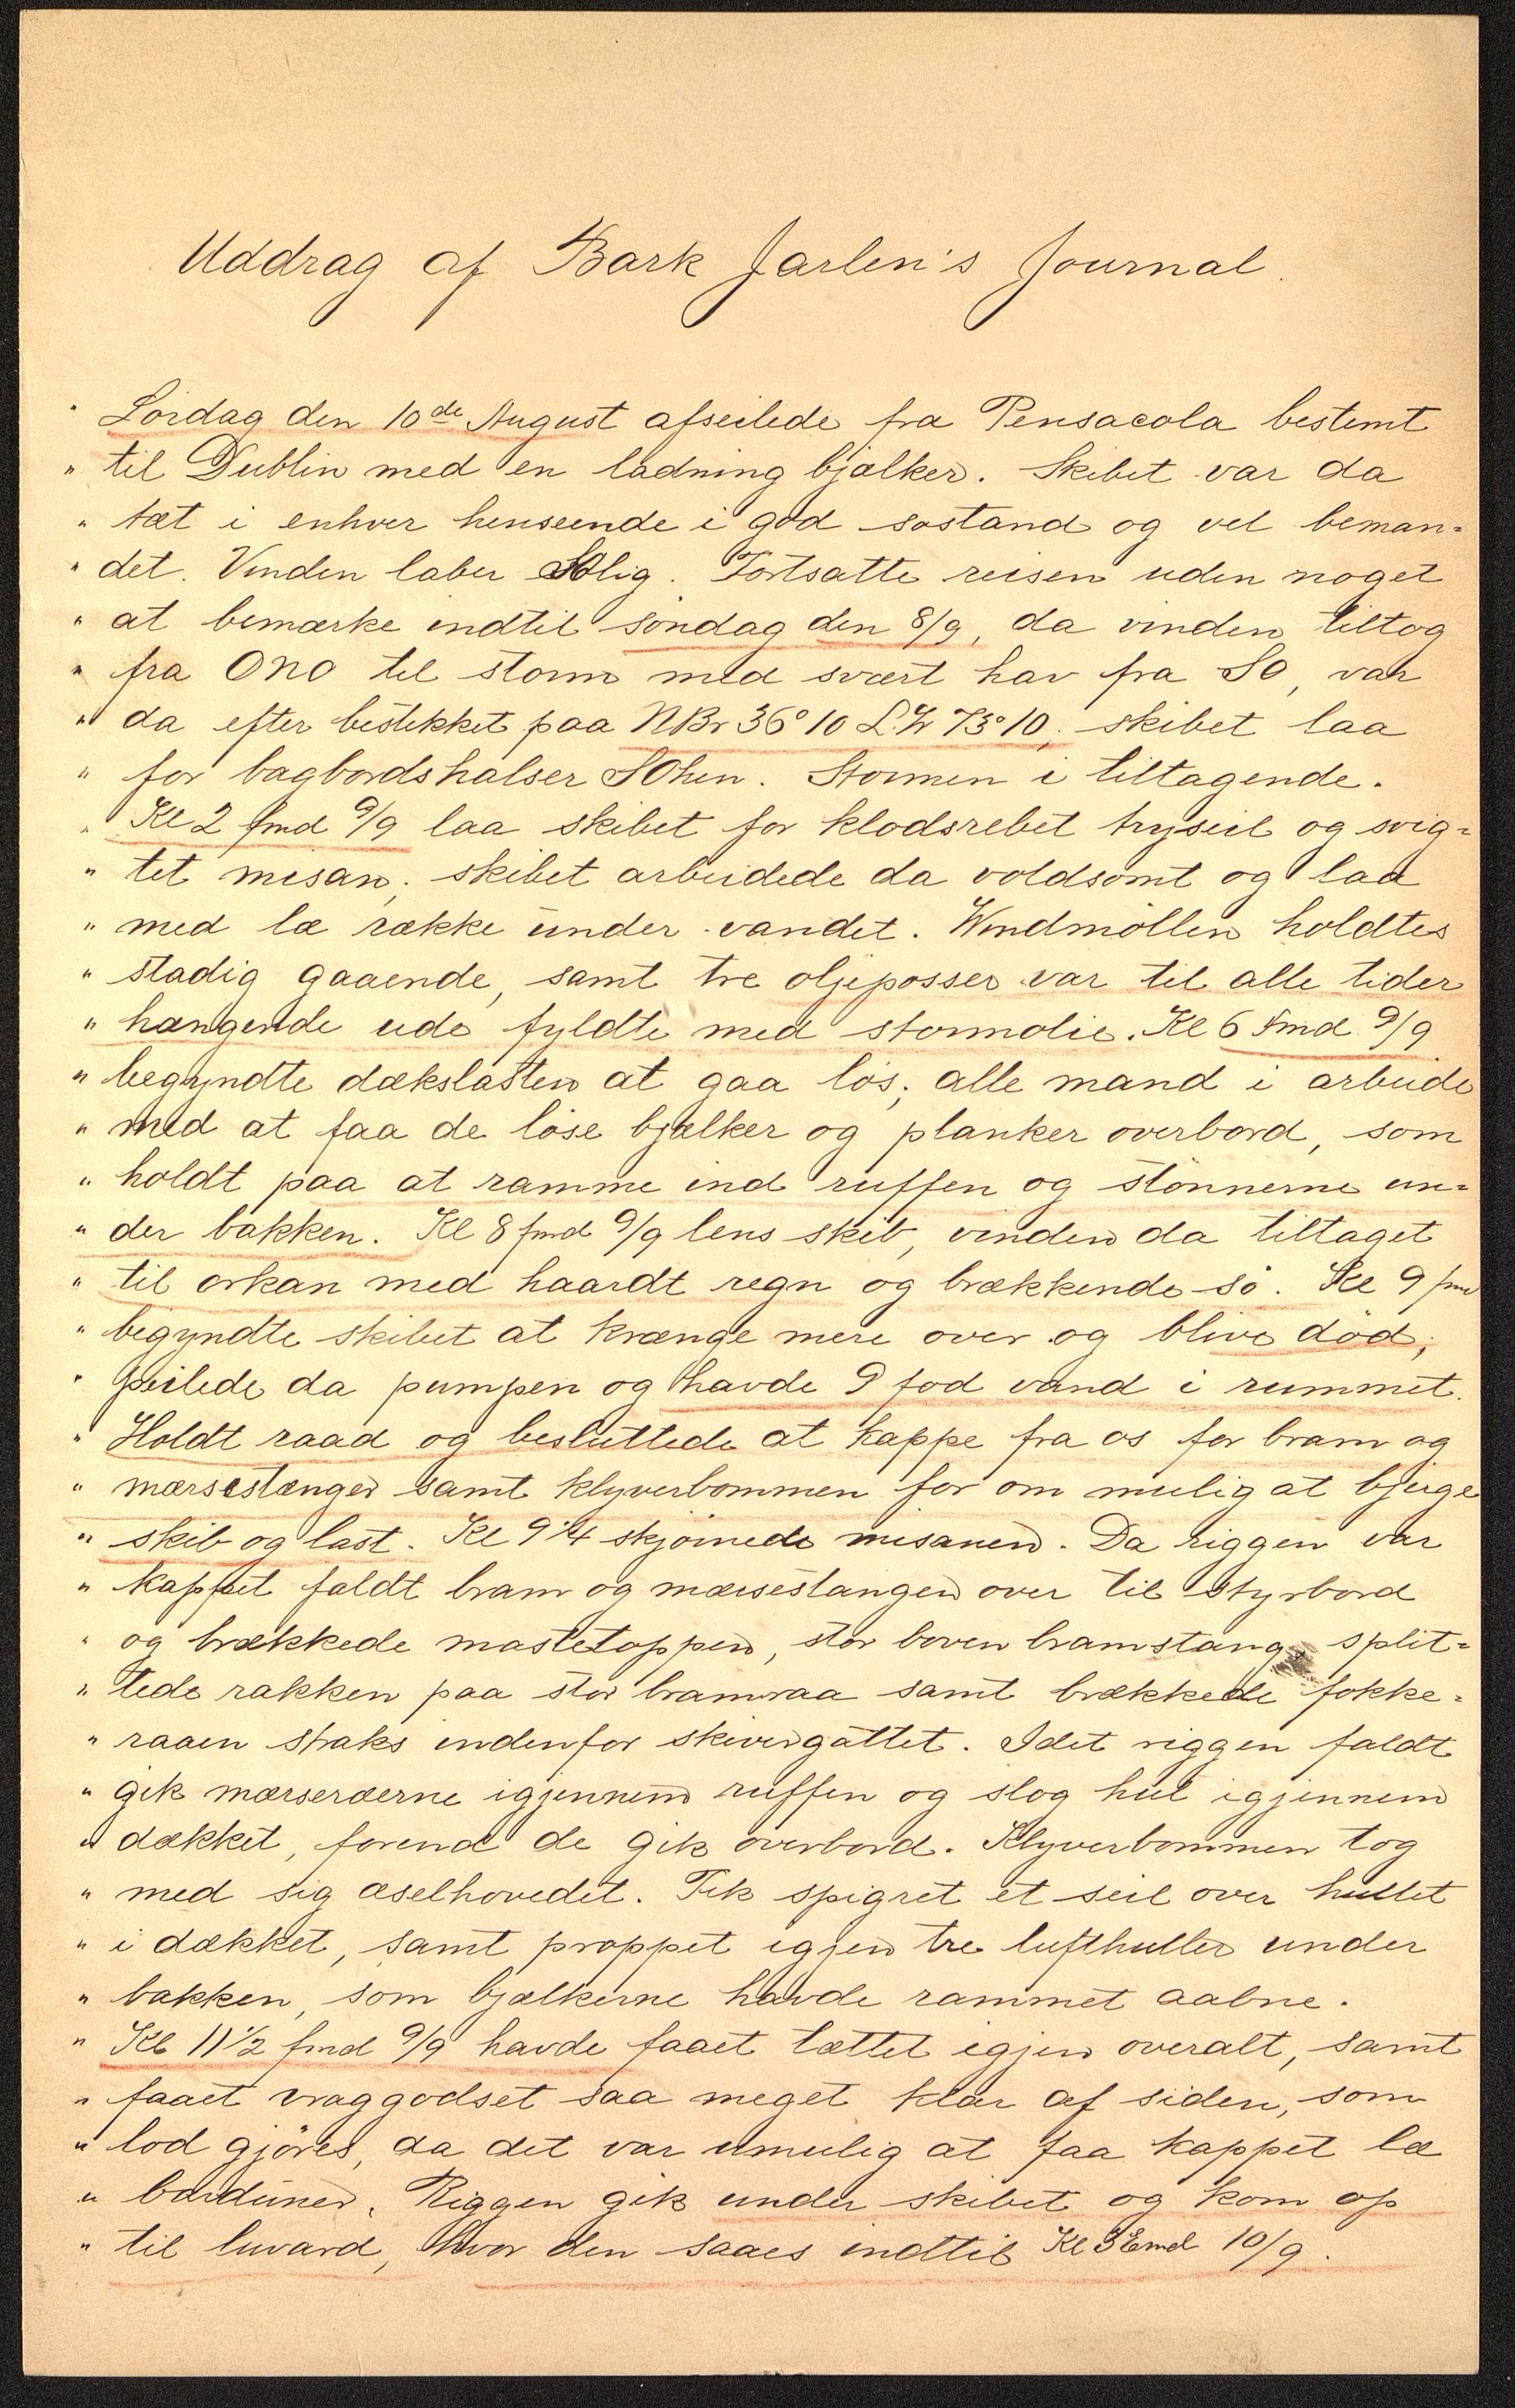 Uddrag af Bark Jarlen's Journal.
" Lördag den 10de August afseilede fra Pensacola bestemt
" til Dublin med en ladning bjælker. Skibet var da
" tæt i enhver henseende i god sostand og vel beman=
" det. Vinden laber SOlig. Fortsatte reisen uden noget
" at bemærke indtil söndag den 8/9, da vinden tiltog
" fra ONO til storm med svært hav fra SO, var
" da efter bestikket paa NBr 36° 10 LW 73° 10, skibet laa
" for bagbordshalser SOhen. Stormen i tiltagende.
" Kl 2 fmd 9/9 laa skibet for klodsrebet tryseil og svig=
" tet misan; skibet arbeidede da voldsomt og laa
" med læ række under vandet. Windmöllen holdtes
" stadig gaaende, samt tre oljeposser var til alle tider
" hængende ude fyldte med stormolie. Kl 6 fmd 9/9
" begyndte dækslasten at gaa lös; alle mand i arbeide
" med at faa de löse bjælker og planker overbord, som
" holdt paa at ramme ind ruffen og stönnerne un=
" der bakken. Kl 8 fmd 9/9 lens skib, vinden da tiltaget
" til orkan med haardt regn og brækkende sö. Kl 9 fmd
" begyndte skibet at krænge mere over og blive död;
" peilede da pumpen og havde 9 fod vand i rummet.
" Holdt raad og besluttede at kappe fra os for bram og
" mærsestænger samt klyverbommen for om mulig at bjerge
" skib og last. Kl 9 1/4 skjörnede misanen. Da riggen var
" kappet faldt bram og mærsestangen over til styrbord
" og brækkede mastetoppen, stor boven bramstang, split=
" tede rakken paa stor bramraa samt brækkede fokke=
" raaen straks indenfor skivegattet. Idet riggen faldt
" gik mærseræerne igjennem ruffen og slog hul igjennem
" dækket, forend de gik overbord. Klyverbommen tog
" med sig æselhovedet. Fik spigret et seil over hullet
" i dækket, samt proppet igjen tre lufthuller under
" bakken, som bjælkerne havde rammet aabne.
" Kl 11 1/2 fmd 9/9 havde faaet tættet igjen overalt, samt
" faaet vraggodset saa meget klar af siden, som
" lod gjöres, da det var umulig at faa kappet læ
" barduner. Riggen gik under skibet og kom op
" til luvard, hvor den saaes indtil Kl 3 Emd 10/9.